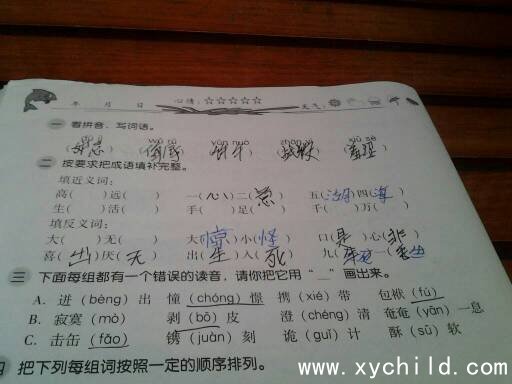 年 月 日 心情：☆☆☆☆☆ 天气：
一 看拼音，写词语。
wǔ rǔ yǔn nuò xiū sè
二 按要求把成语填补完整。
填近义词：
高( )远( ) 一(心)二(意) 五( )四(海)
生( )活( ) 手( )足( ) 千( )万( )
填反义词：
大( )无( ) 大(惊)小(怪) 口(是)心(非)
喜(出)厌( ) 出(生)入(死) 九( )一( )
三 下面每组都有一个错误的读音，请你把它用“__”画出来。
A. 进(bèng)出 憧(chóng)憬 携(xié)带 包袱(fú)
B. 寂寞(mò) 剥(bō)皮 澄(chéng)清 奄奄(yān)一息
C. 击缶(fǎo) 镌(juàn)刻 诡(guǐ)计 酥(sū)软
四 把下列每组词按照一定的顺序排列。
www.xychild.com